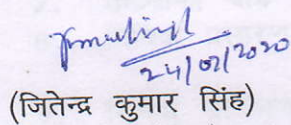 24/02/2020
(जितेन्द्र कुमार सिंह)